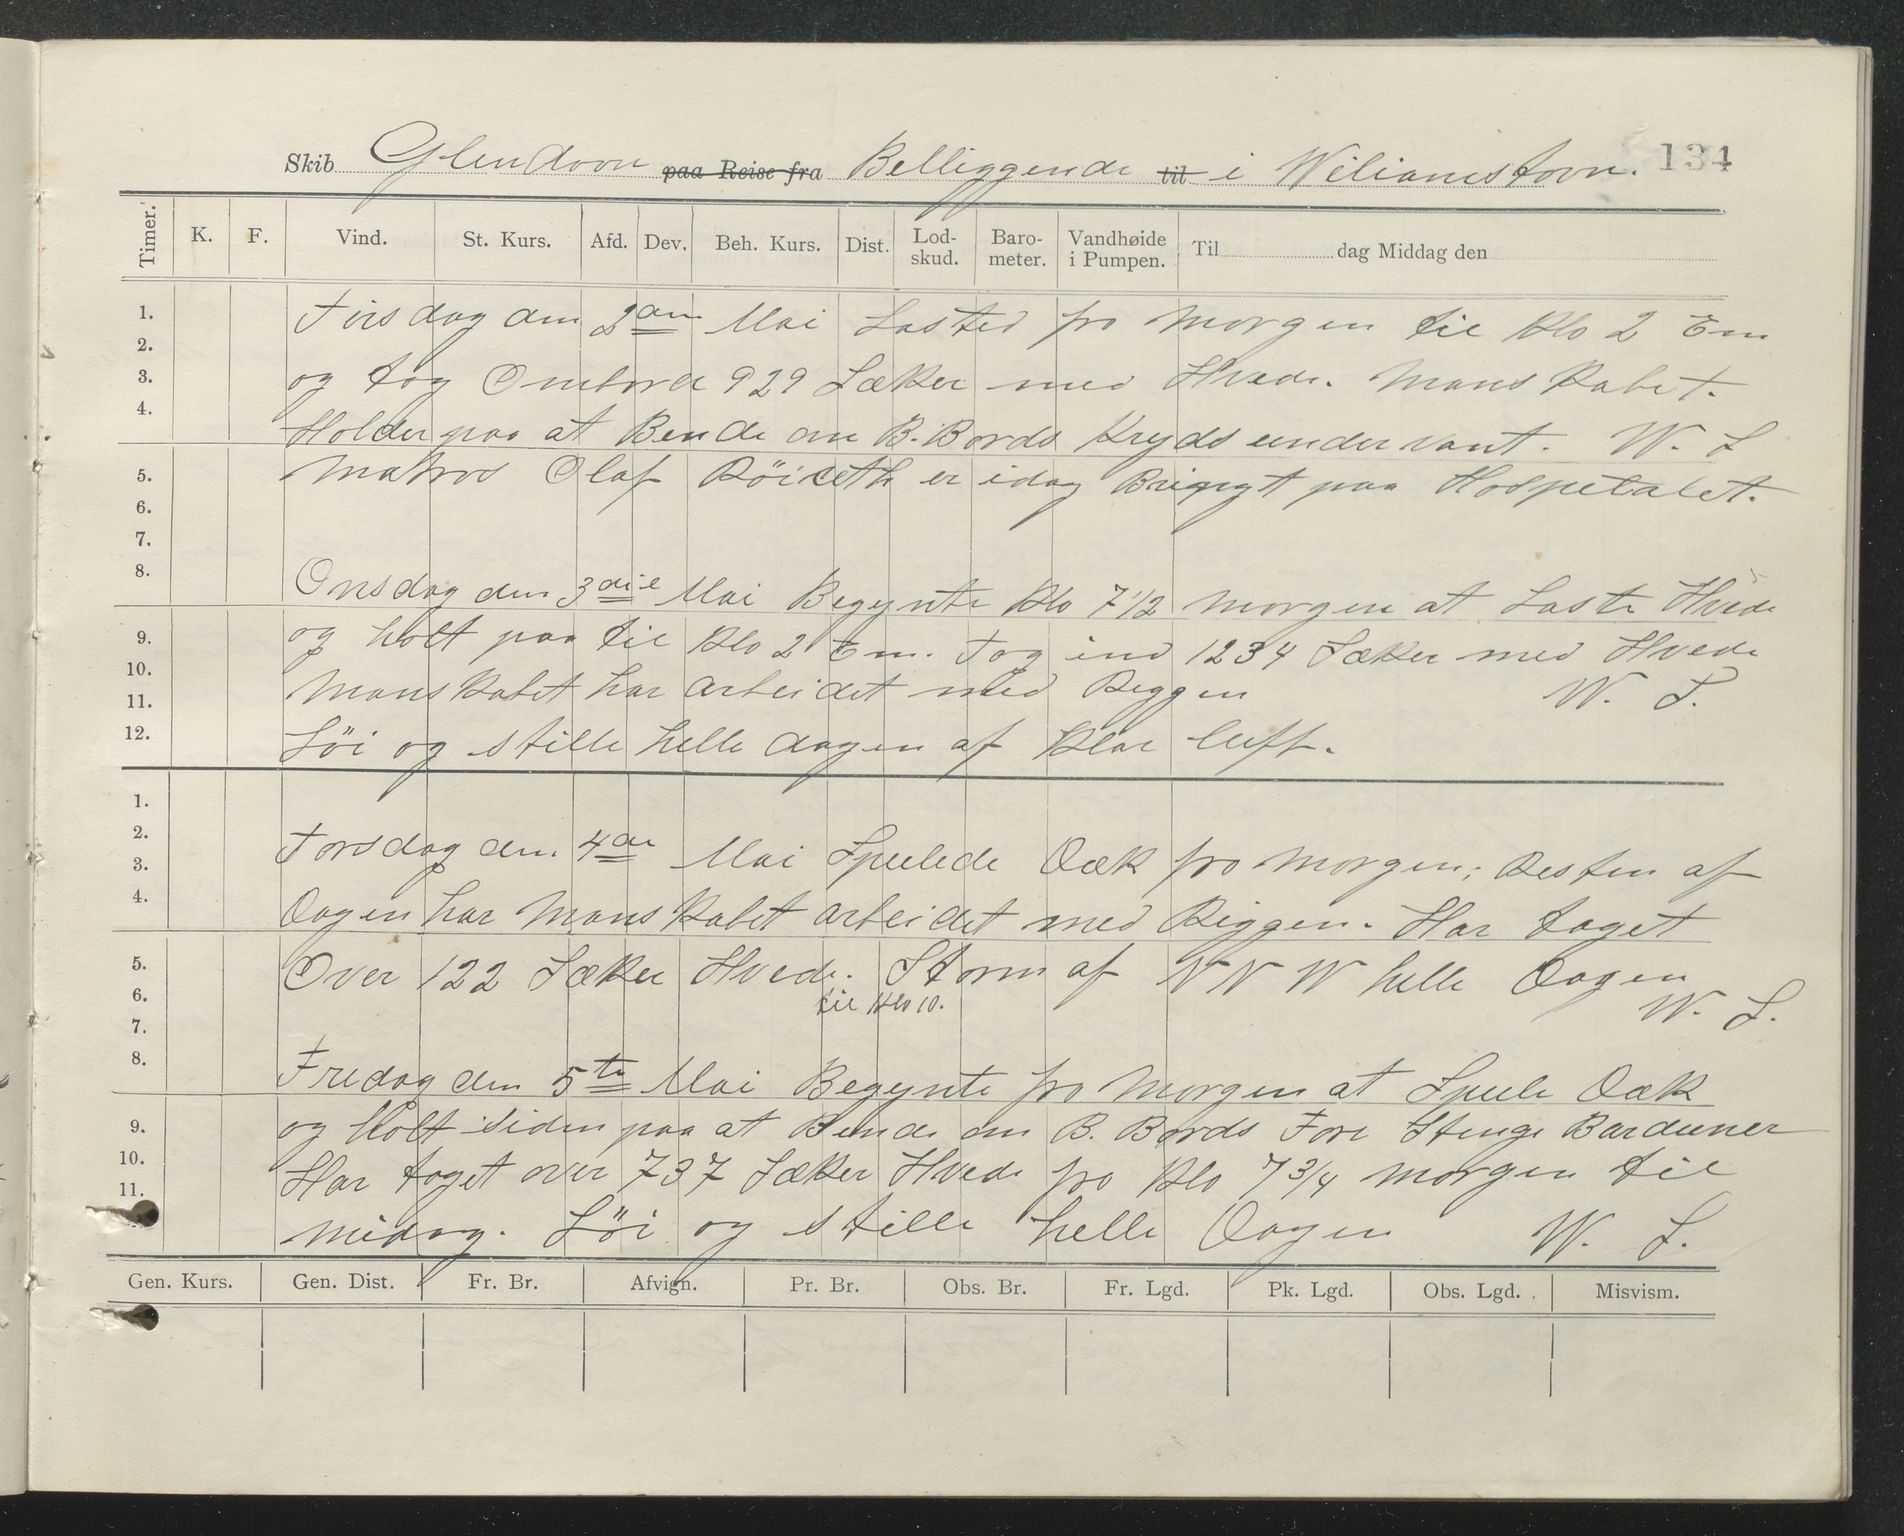 134
Skib Glendoon paa Reise fra Belliggende til i Wilianistovn.
Timer. K. F. Vind. St. Kurs. Afd. Dev. Beh. Kurs. Dist. Lod-skud. Baro-meter. Vandhøide i Pumpen. Til dag Middag den
1.
2.
3.
4.
Tirsdag den 2den Mai Lasted fra Morgen til Klo 2 Em
og tog Ombord 929 Sækker med Hvede. Manskabet.
Holder paa at Bende om B. Bords Kryds undervant. W. S
Matros Olaf Röiseth er idag Bringt paa Hospetalet.
5.
6.
7.
8.
Onsdag den 3die Mai Begynte Klo 7 1/2 Morgen at Laste Hvede
og holt paa til Klo 2 Em. Tog ind 1234 Sækker med Hvede
Manskabet har arbeidet med Riggen W. S.
Löi og stille helle dagen af klar luft.
9.
10.
11.
12.
1.
2.
3.
4.
Torsdag den 4de Mai Spulede Dæk fra Morgen; Resten af
Dagen har Manskabet arbeidet med Riggen. Har taget
Over 122 Sækker Hvede. Storm af NNW helle Dagen
til Klo 10. W. S.
5.
6.
7.
8.
Fredag den 5te Mai Begynte fra Morgen at Spule Dæk
og holt siden paa at Bende om B. Bords Fore Stenge Barduner
Har taget over 737 Sækker Hvede fra Klo 7 3/4 Morgen til
midag. Löi og stille helle Dagen W. S.
9.
10.
11.
Gen. Kurs. Gen. Dist. Fr. Br. Afvign. Pr. Br. Obs. Br. Fr. Lgd. Pk. Lgd. Obs. Lgd. Misvism.